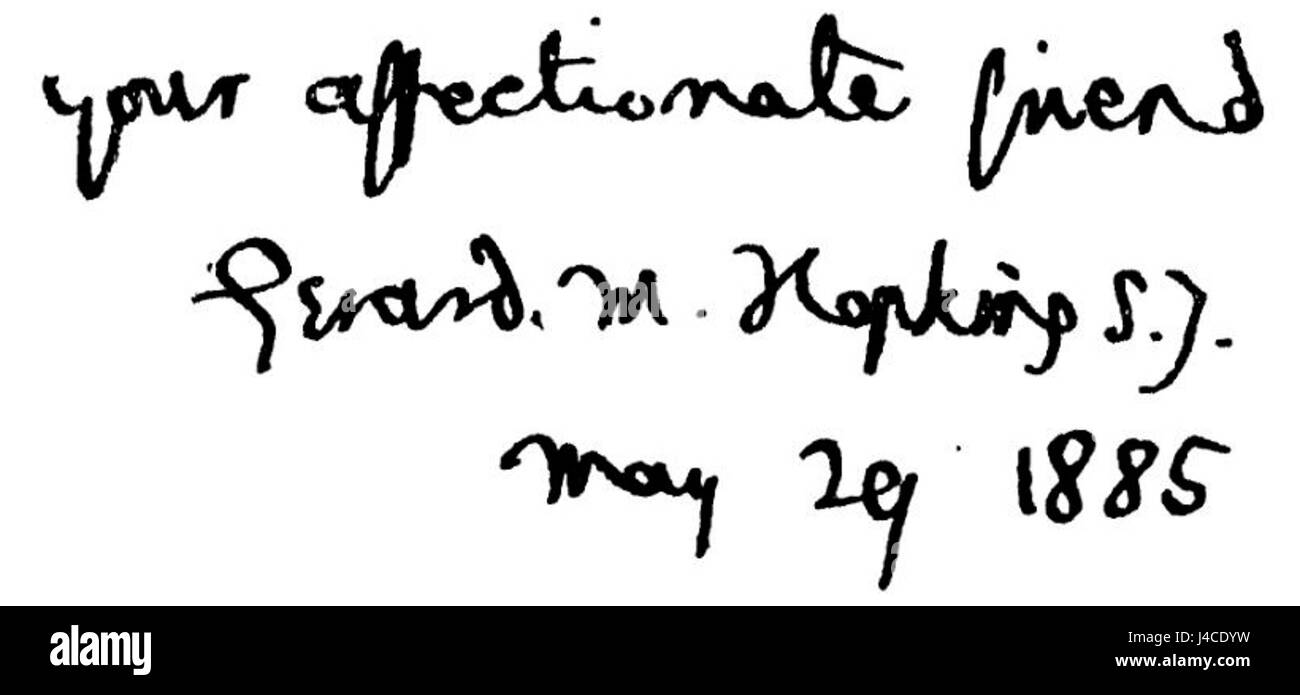 your affectionate friend
Gerard. M. Hopkins S.J.
May 29 1885
alamy
Image ID: J4CDYW
www.alamy.com